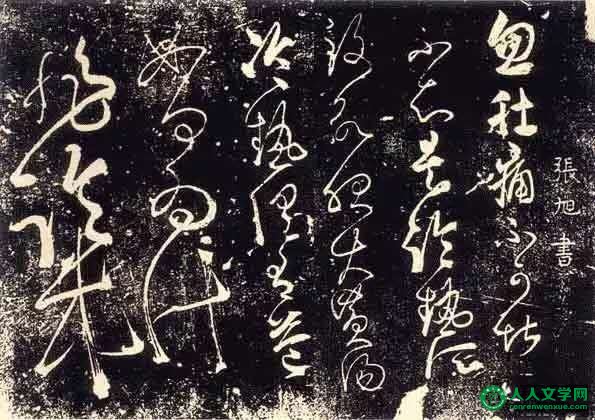 張旭書
忽肚痛不可堪
不知是冷熱所
致欲服大黃湯
冷熱俱有益
如何為計
非臨床
人人文学网
renrenwenxue.com